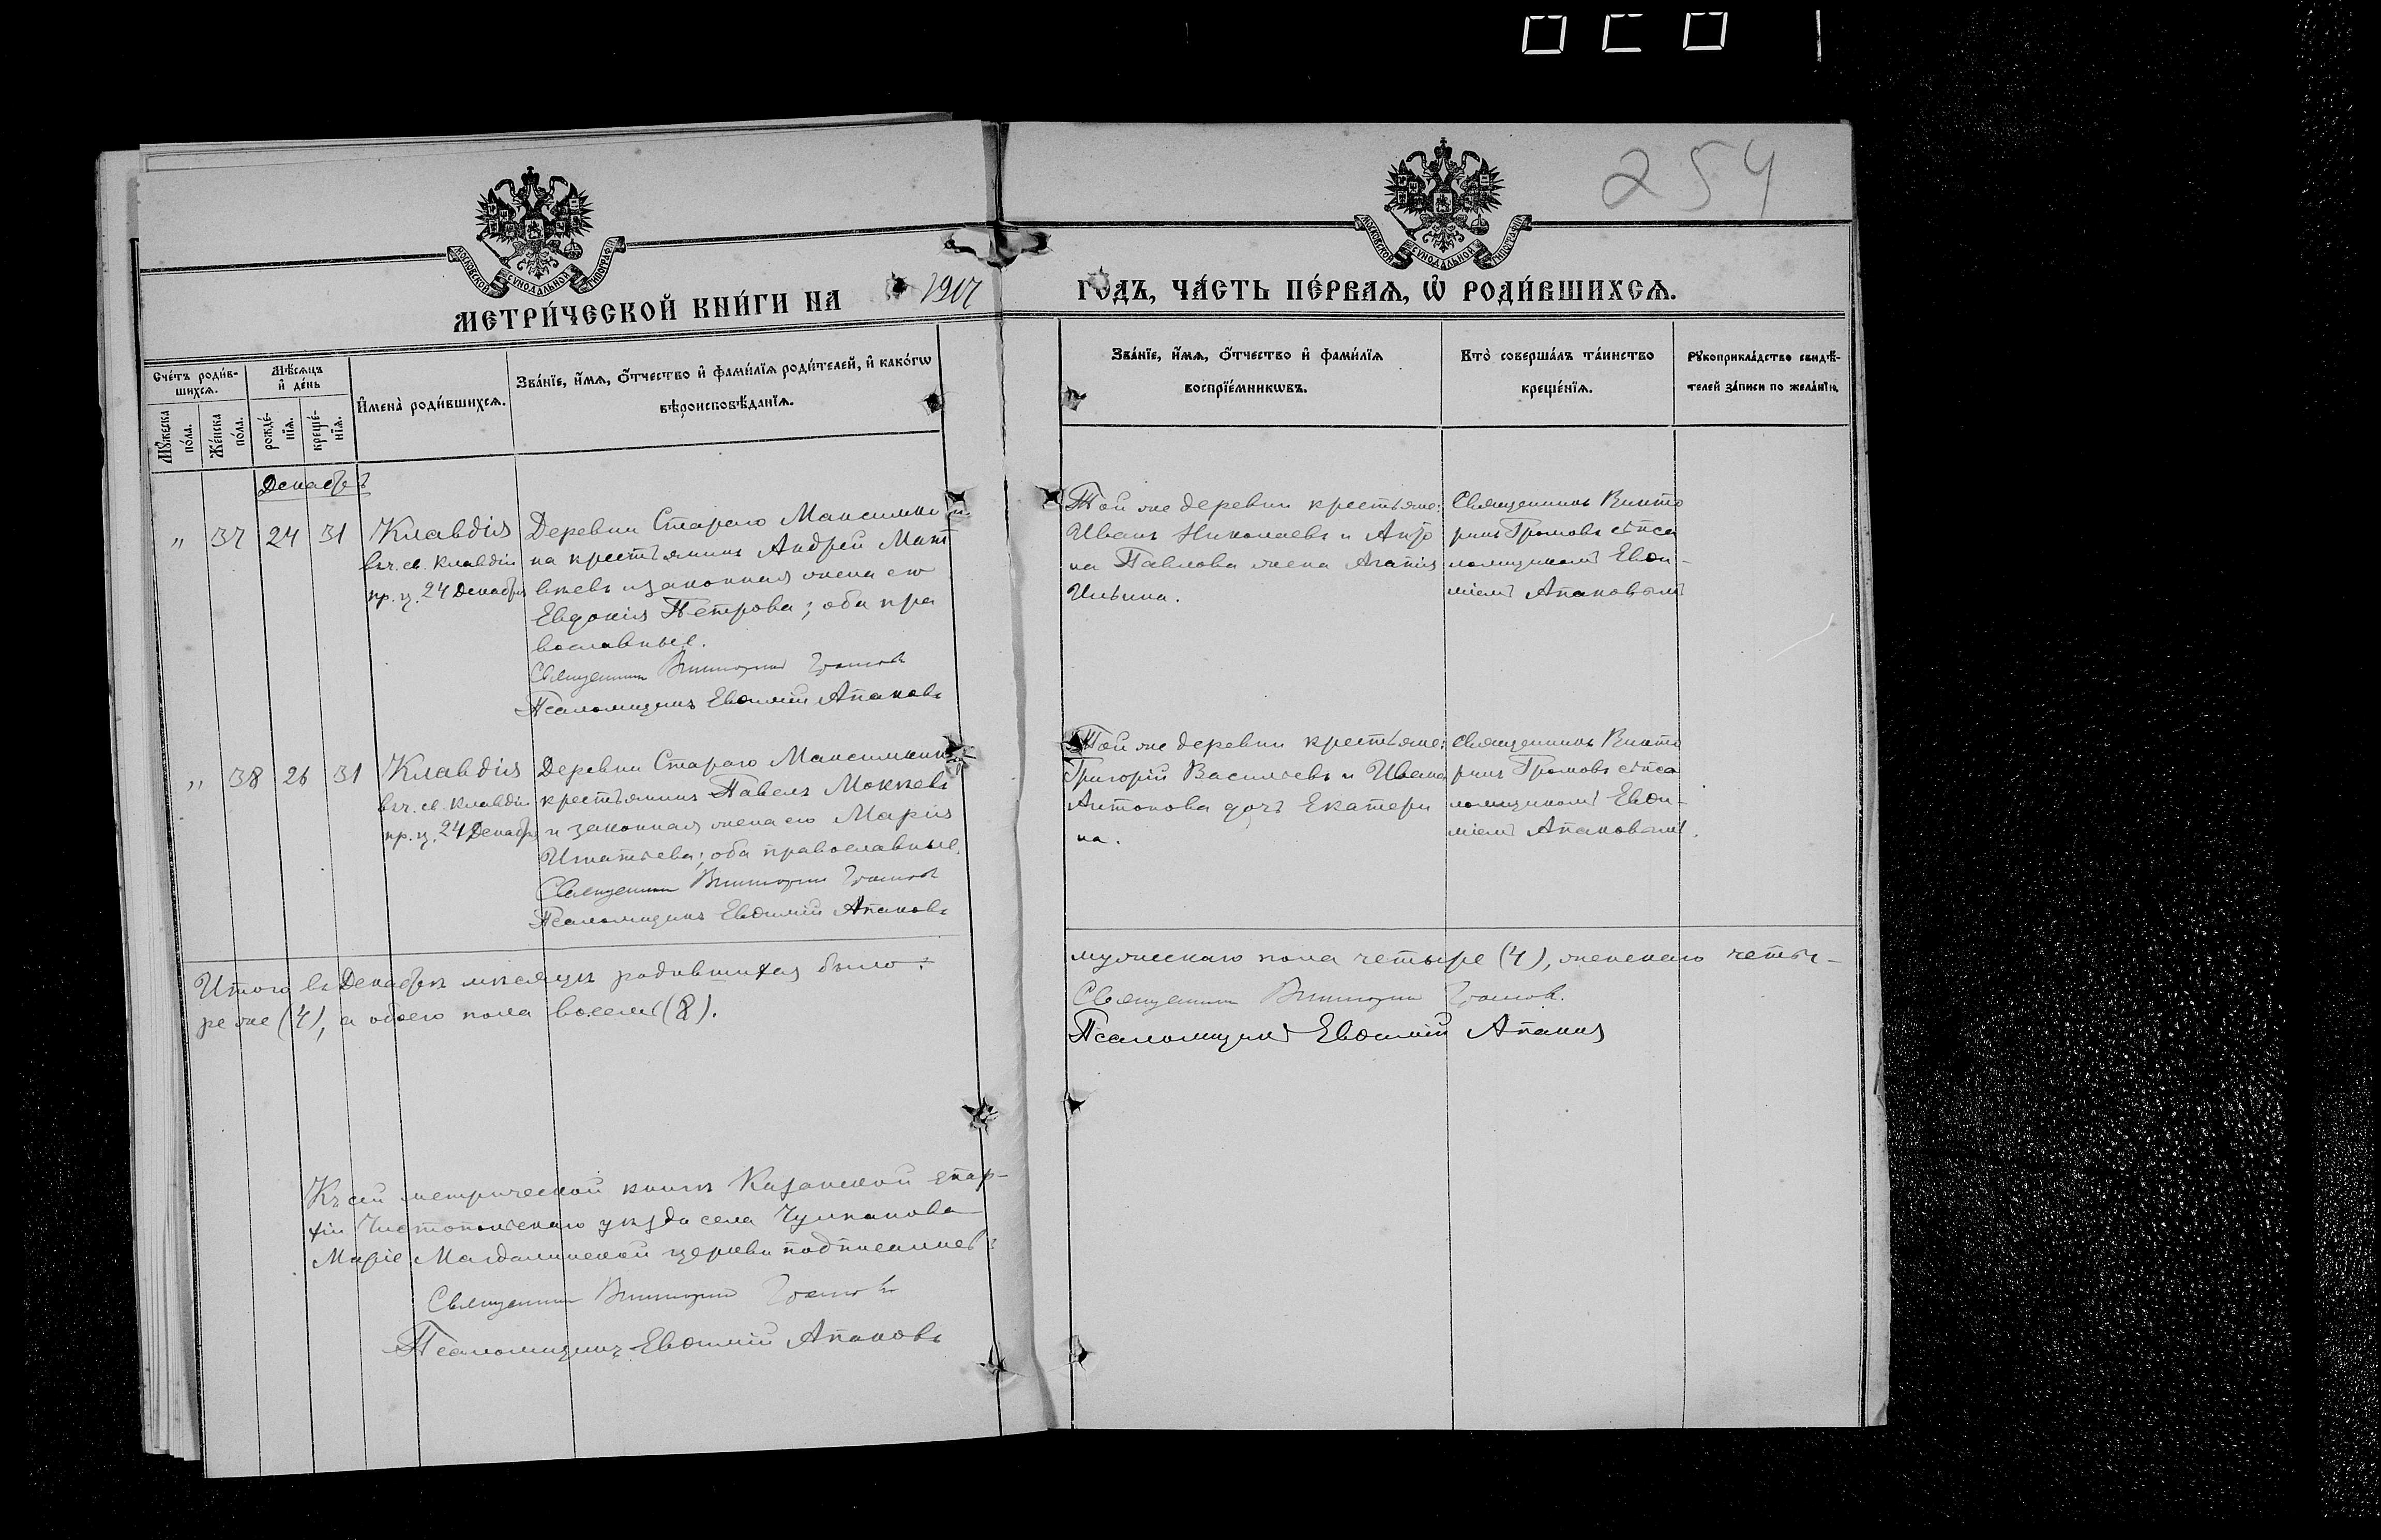 254
МОСКОВСКОЙ СѴНОДАЛЬНОЙ ТИПОГРАФІИ
МОСКОВСКОЙ СѴНОДАЛЬНОЙ ТИПОГРАФІИ
МЕТРИ́ЧЕСКОЙ КНИ́ГИ НА 1917 ГО́ДЪ, ЧА́СТЬ ПЕ́РВАѦ, Ѡ҆ РОДИ́ВШИХСѦ.
Сче́тъ роди́в-
шихсѧ.
Мꙋ́жеска
по́ла.
Же́нска
по́ла.
Мѣ́сѧцъ
и҆ де́нь
рожде́-
нїѧ.
креще́-
нїѧ.
И҆мена̀ роди́вшихсѧ.
Зва́нїе, и҆́мѧ, ѻ҆́тчество и҆ фами́лїѧ роди́телей, и҆ како́гѡ
вѣроисповѣ́данїѧ.
Зва́нїе, и҆́мѧ, ѻ҆́тчество и҆ фами́лїѧ
воспрїе́мникѡвъ.
Кто̀ соверша́лъ та́инство
креще́нїѧ.
Рꙋкоприкла́дство свидѣ́-
телей за́писи по жела́нїю.
Декабрь
„ 37 24 31
Клавдія
въ ч. св. Клавдіи
пр. ц. 24 Декабря
Деревни Стараго Максимки
на крестьянинъ Андрей Мат
вѣевъ и законная жена его
Евдокія Петрова; оба пра
вославные.
Священник Викторин Громов
Псаломщикъ Евѳимій Апаковъ
Той же деревни крестьяне:
Иванъ Николаевъ и
на Павлова жена Агапія
Ильина.
Священникъ Викто
ринъ Громовъ съ пса
ломщикомъ Евѳи-
міемъ Апаковымъ
„ 38 26 31
Клавдія
въ ч. св. Клавдіи
пр. ц. 24 Декабря
Деревни Стараго Максимкина
крестьянинъ Павелъ Мокѣевъ
и законная жена его Марія
Игнатьева; оба православные.
Священник Викторин Громов
Псаломщикъ Евѳимій Апаковъ
Той же деревни крестьяне:
Григорій Васильевъ и Ивана
Антонова дочь Екатери
на.
Священникъ Викто
ринъ Громовъ съ пса
ломщикомъ Евѳи-
міемъ Апаковымъ.
Итого въ Декабрѣ мѣсяцѣ родившихся было: мужескаго пола четыре (4), женскаго четы-
ре же (4), а обоего пола восемь (8).
Священник Викторин Громов.
Псаломщикъ Евѳимій Апаков
Къ сей метрической книгѣ Казанской епар-
хіи Чистопольскаго уѣзда села Чулпанова
Маріе Магдалинской церкви подписались:
Священник Викторин Громовъ
Псаломщикъ Евѳимій Апаковъ